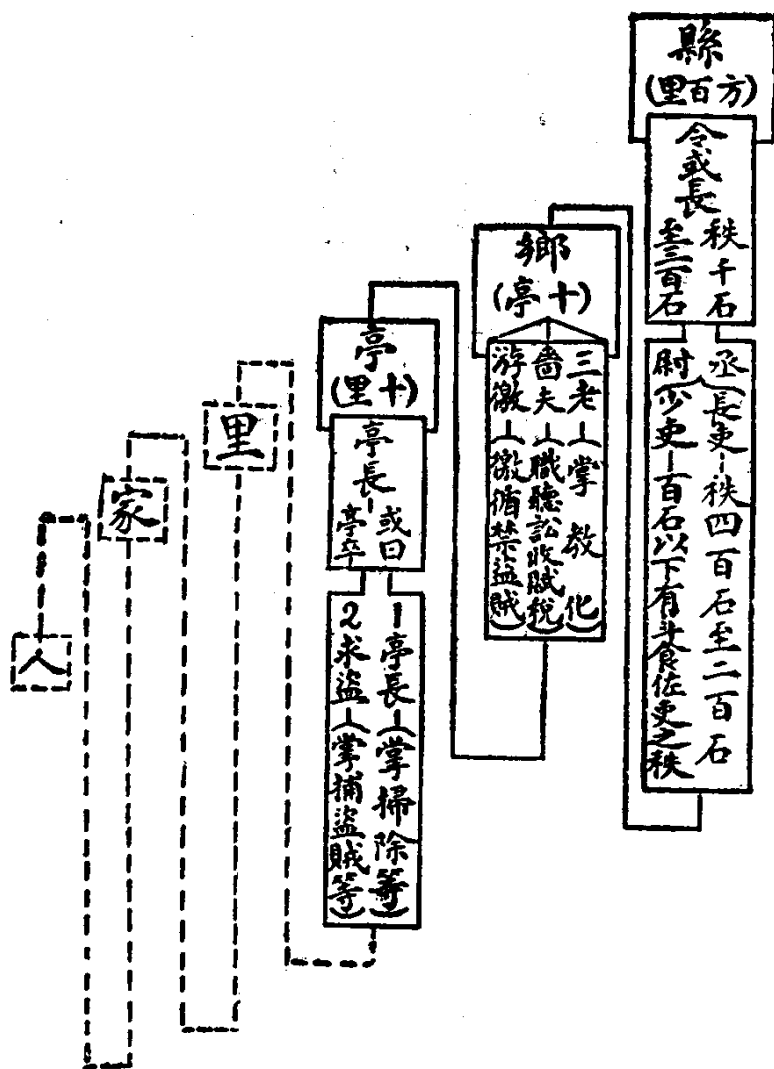 縣
(方百里)
令或長
秩千石
至三百石
丞
尉
長吏—秩四百石至二百石
少吏—百石以下有斗食佐吏之秩
鄉
(十亭)
三老—(掌教化)
嗇夫—(職聽訟收賦稅)
游徼—(徼循禁盜賊)
亭
(十里)
亭長—
或曰
亭卒
1亭長—(掌掃除等)
2求盜—(掌捕盜賊等)
里
家
人